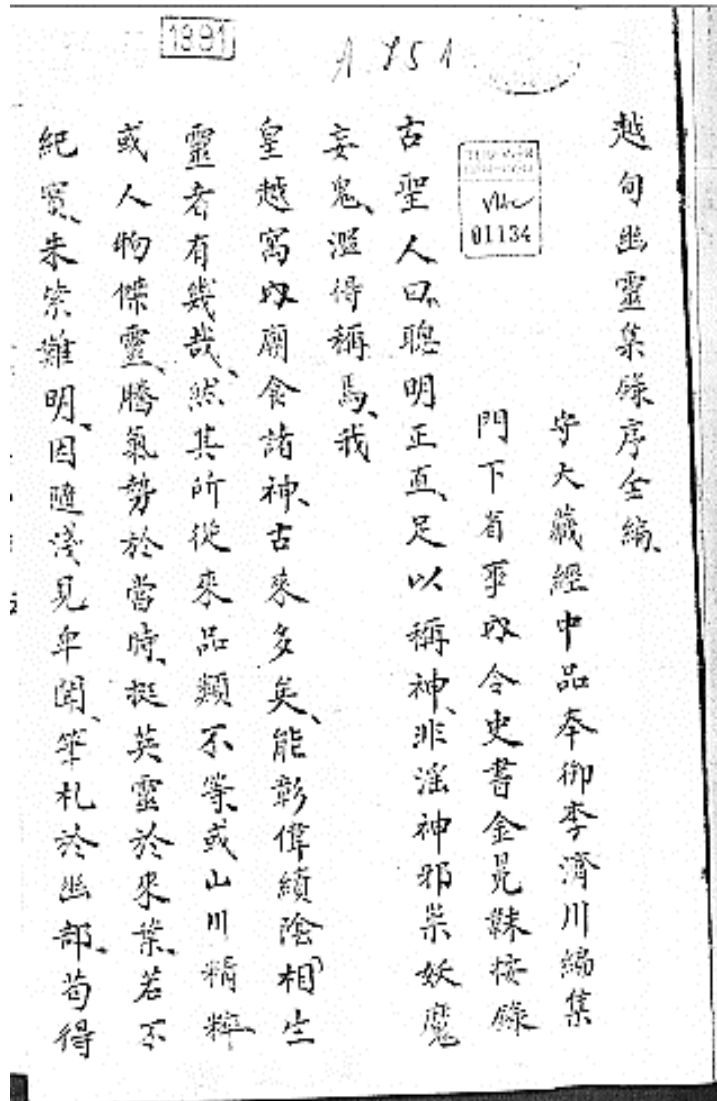 1891
A 751
01134
越甸幽靈集錄序全編、
守大藏經中品奉御李濟川編集
門下省事政令史書金冕韈按錄
古聖人曰、聰明正直、足以稱神、非滛神邪祟妖魔
妄鬼、濫得稱焉、我
皇越寓内廟食諸神、古來多矣、能彰偉績陰相生
靈者有幾哉、然其所從來品類不等、或山川精粹
或人物傑靈、騰氣勢於當時、挺英靈於來葉、若不
紀實、朱紫難明、因隨淺見卑聞、筆札於幽部、苟得